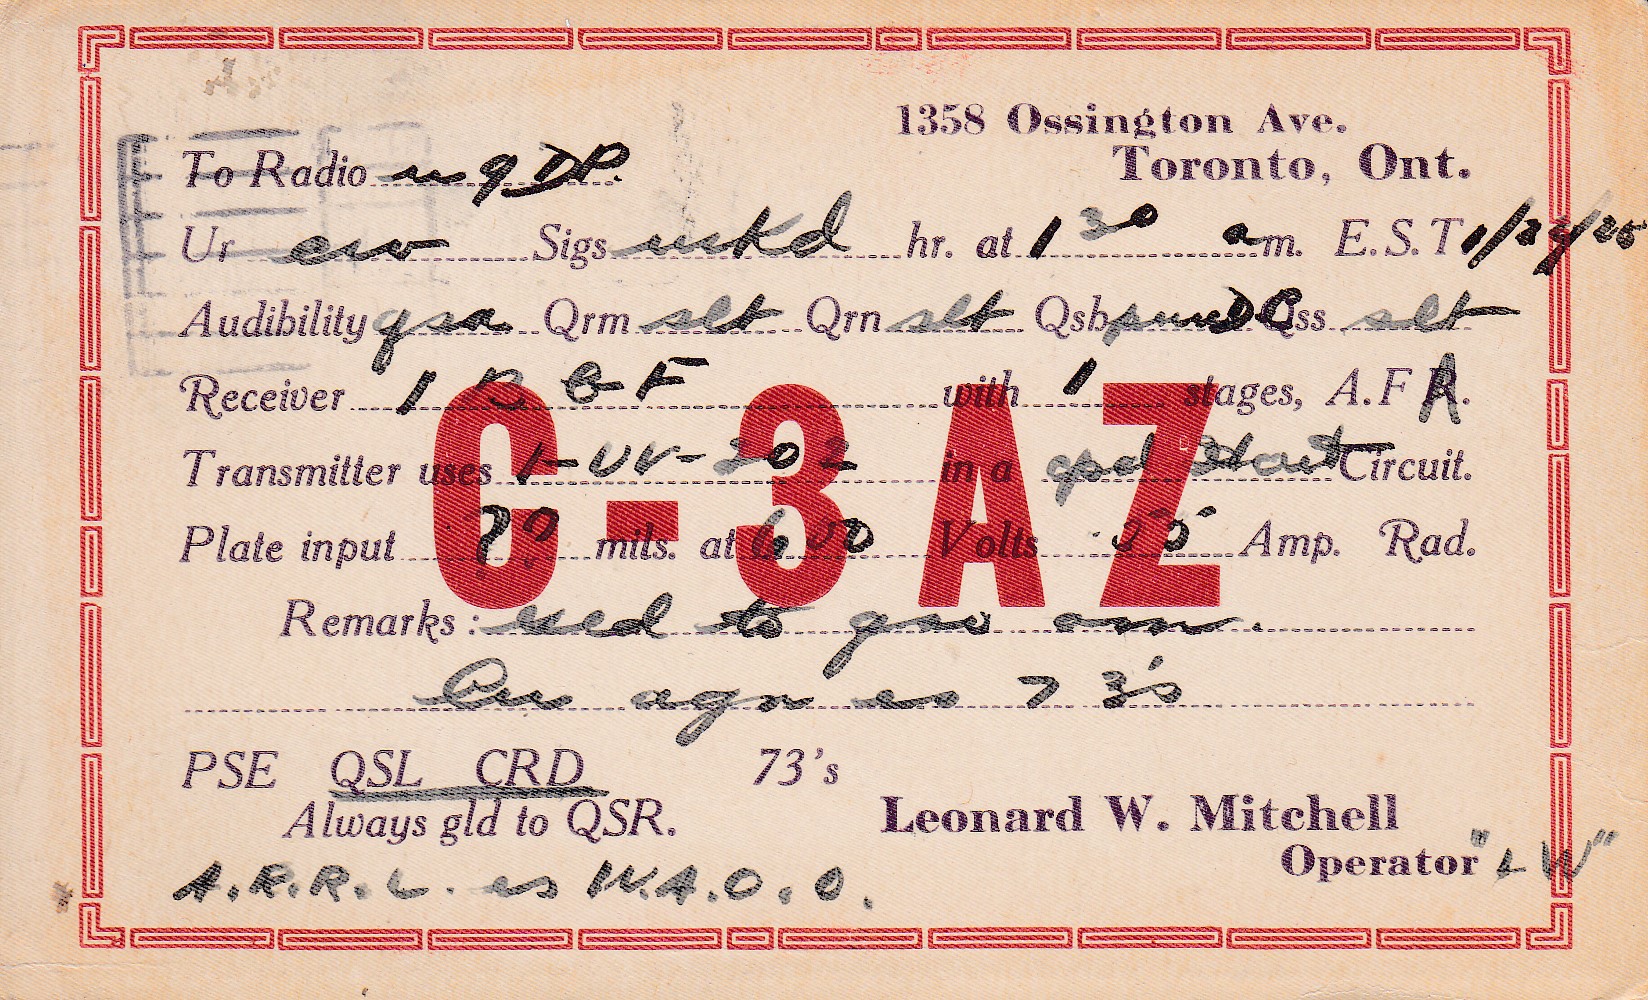 1358 Ossington Ave.
Toronto, Ont.
To Radio u 9DP.
Ur cw Sigs wkd hr. at 1 30 am. E.S.T 1/27/25
Audibility qsa Qrm slt Qrn slt Qsb pure DC Qss slt
Receiver 1 with 1 stages, A.F R.
C-3AZ
Transmitter uses 1-UV-202 in a Circuit.
Plate input ?? mils. at 600 Volts Amp. Rad.
Remarks: to qso om.
Cu agn es 73's
PSE QSL CRD 73's
Always gld to QSR.
Leonard W. Mitchell
Operator "LW"
A.R.R.L. es W.A.O.O.